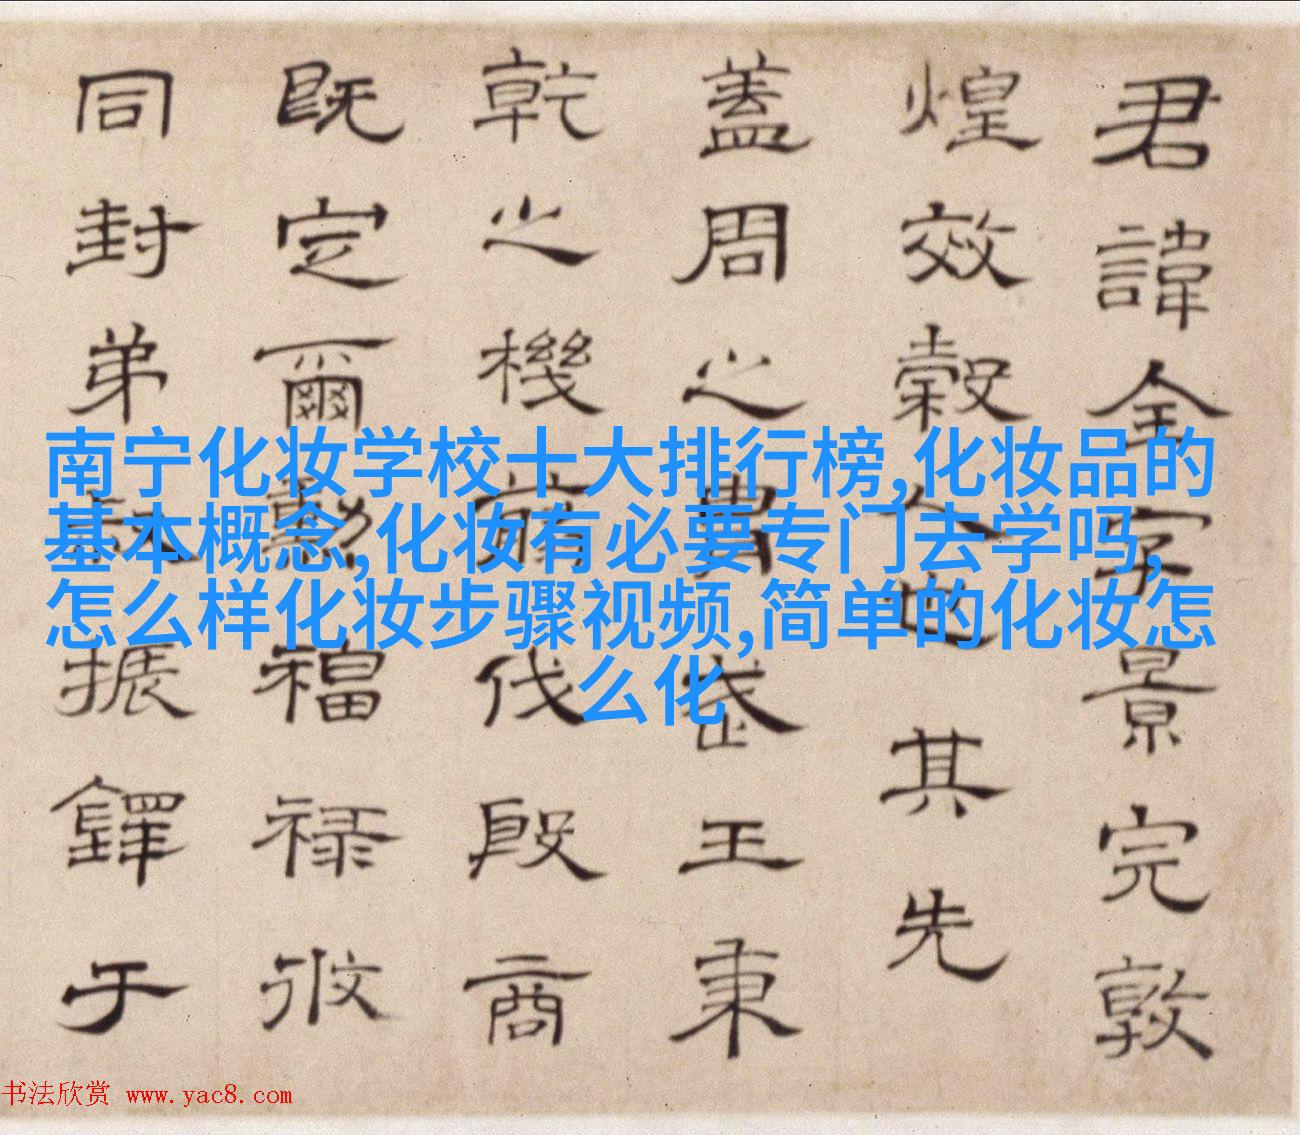 君諱全字景完敦
煌效穀人也其先
蓋周之武王秉
乾之機伐殷商
既定爾勳福祿攸
同封弟振鐸于
南宁化妆学校十大排行榜,化妆品的
基本概念,化妆有必要专门去学吗,
怎么样化妆步骤视频,简单的化妆怎
么化
书法欣赏 www.yac8.com